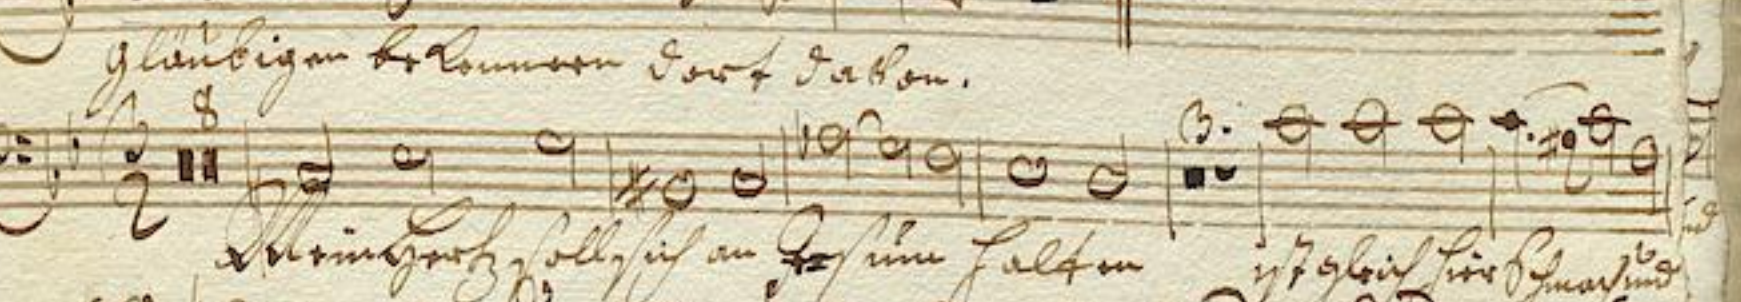 gläubigen bekennern dort davon.
8
Mein Hertz soll sich an Jesum halten
3.
ist gleich hier Schmach und